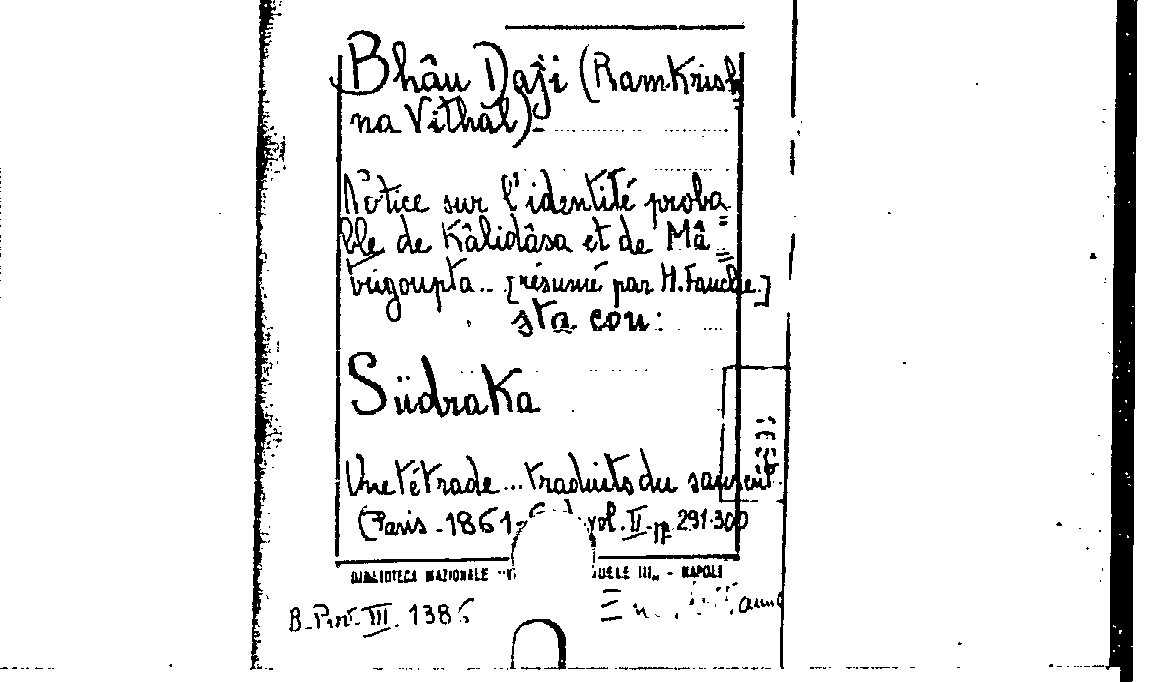 Bhâu Daji (Ram Krish=
na Vithâl)-
Notice sur l'identité proba=
ble de Kâlidâsa et de Mâ=
trigoupta.. [résumé par H. Fauche.]
sta con:
Südraka
Une tétrade... traduits du sanscrit.
(Paris - 1861- vol. II- pp. 291-300
BIBLIOTECA NAZIONALE "V UELE III„ - NAPOLI
B. Prov. III. 138